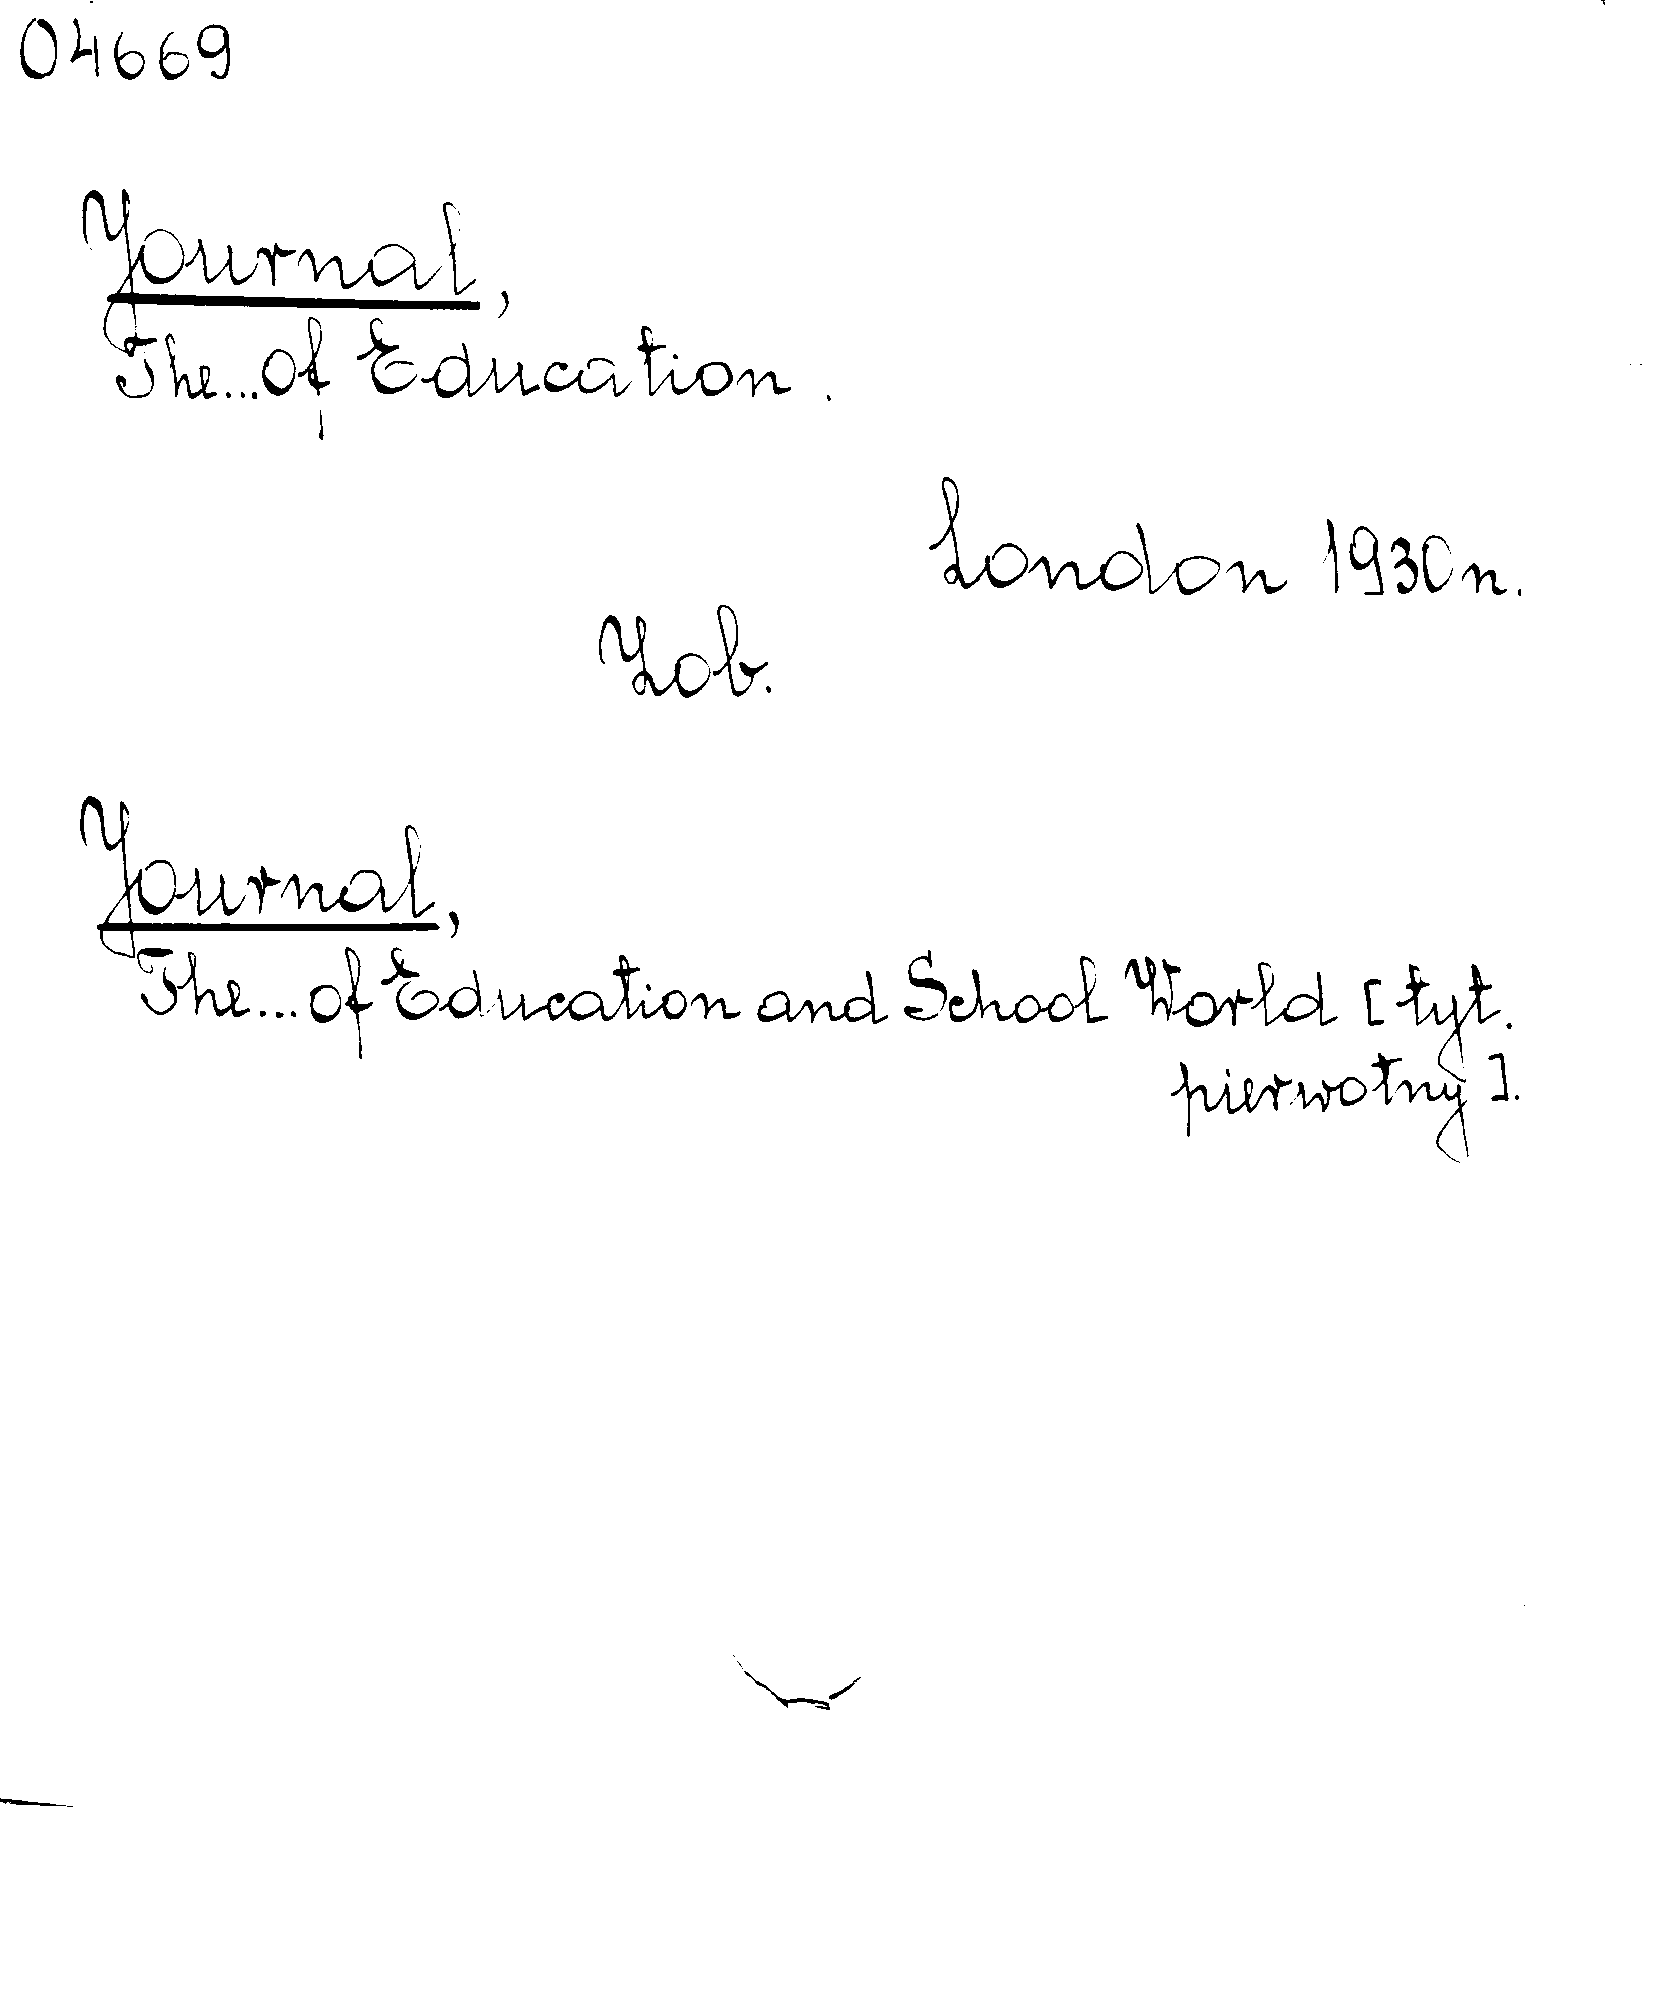 04669
Journal,
The...of Education.
London 1930n.
Zob.
Journal,
The...of Education and School World [tyt.
pierwotny].